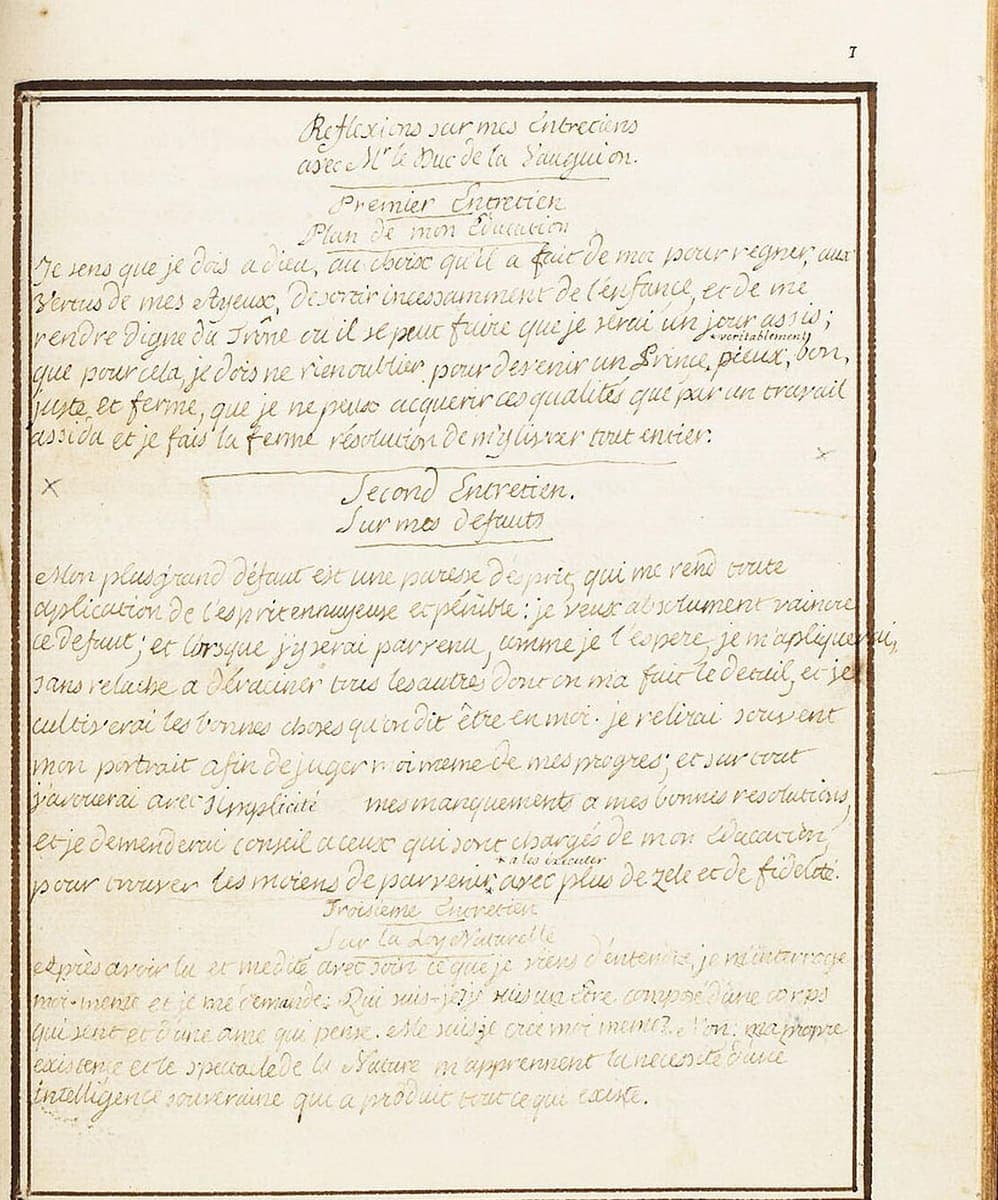 1
Reflexions sur mes Entretiens
avec Mr le Duc de la Vauguion.
Premier Entretien
Plan de mon Education
Je sens que je dois a dieu, au choix qu'il a fait de moi pour regner, aux
Vertus de mes Ayeux, de sortir incessamment de l'enfance, et de me
rendre digne du Trône ou il se peut faire que je serai un jour assis;
que pour cela, je dois ne rien oublier pour devenir un Prince *veritablement pieux, bon,
juste et ferme, que je ne peux acquerir ces qualités que par un travail
assidu et je fais la ferme résolution de m'y livrer tout entier.
Second Entretien.
Sur mes defauts
Mon plus grand défaut est une paresse d'esprit, qui me rend toute
application de l'esprit ennuyeuse et pénible: je veux absolument vaincre
ce defaut; et lorsque j'y serai parvenu, comme je l'espere, je m'apliquerai,
sans relache a déraciner tous les autres dont on m'a fait le detail, et je
cultiverai les bonnes choses qu'on dit être en moi. je relirai souvent
mon portrait afin de juger moi meme de mes progres; et sur tout
j'avouerai avec simplicité mes manquements a mes bonnes resolutions,
et je demenderai conseil a ceux qui sont chargés de mon Education,
pour trouver les moiens de parvenir *a les executer avec plus de zele et de fidelité.
Troisieme Entretien
Sur la Loy Naturelle
Après avoir lu et medité avec soin ce que je viens d'entendre, je m'interroge
moi-meme et je me demande: Qui suis-je? je suis un être composé d'une corps
qui sent et d'une ame qui pense. Me suis je créé moi meme? Non: ma propre
existence et le spectacle de la Nature m'apprennent la necessité d'une
intelligence souveraine qui a produit tout ce qui existe.